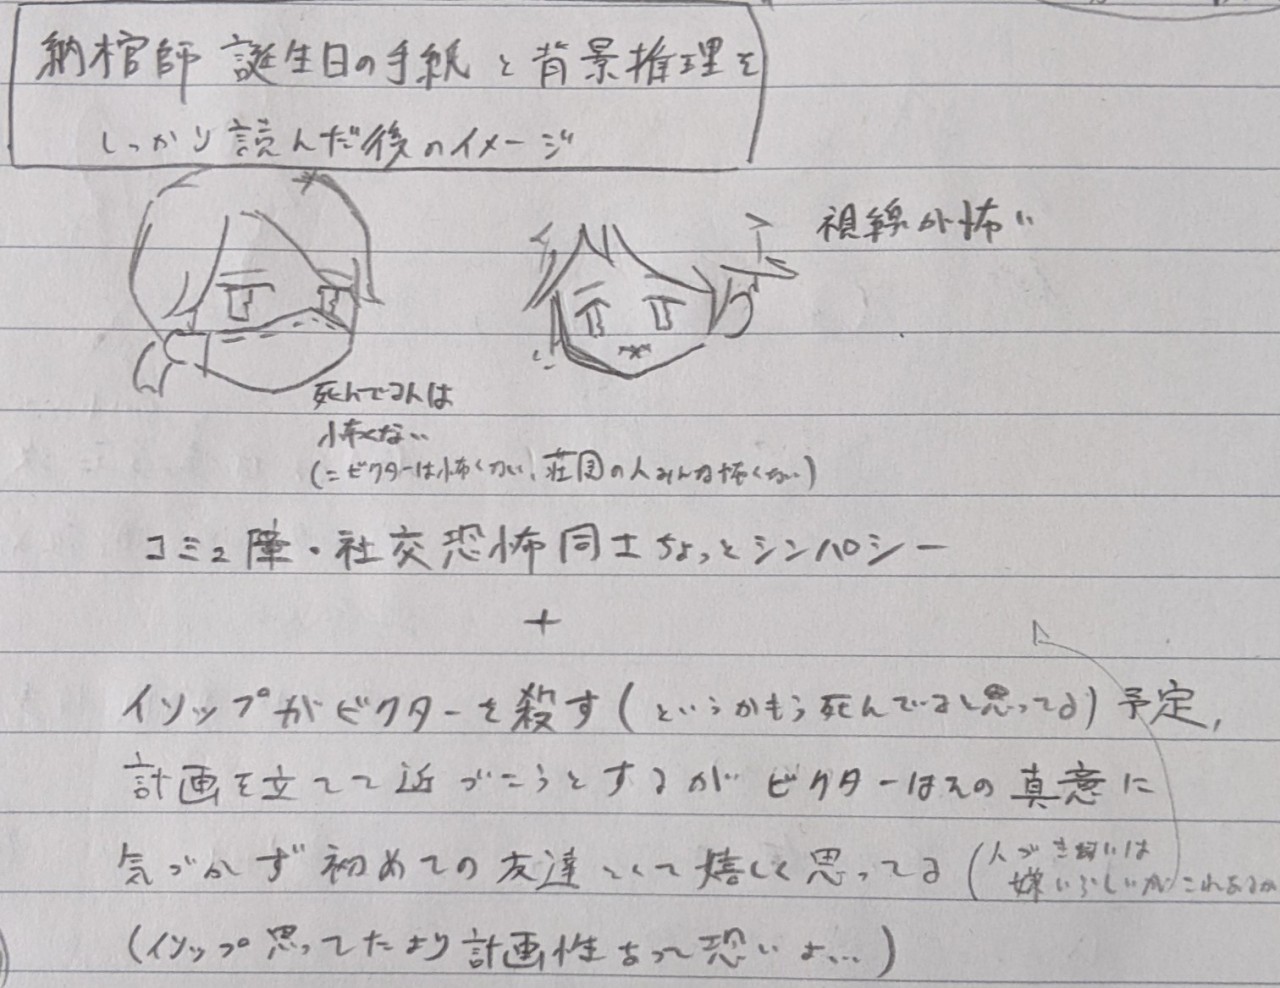 納棺師 誕生日の手紙と背景推理を
しっかり読んだ後のイメージ
視線が怖い
死んでる人は
怖くない
(=ビクターは怖くない、荘園の人みんな怖くない)
コミュ障・社交恐怖同士ちょっとシンパシー
+
イソップがビクターを殺す(というかもう死んでると思ってる)予定,
計画を立てて近づこうとするがビクターはその真意に
気づかず初めての友達として嬉しく思ってる(人づき合いは
嫌いらしいがこれあるか
(イソップ思ってたより計画性あって恐いよ…)